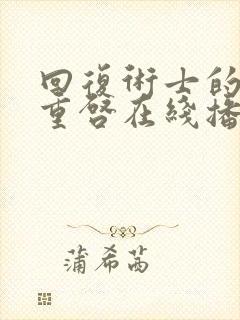 回復術士的
重啓在綫播
蒲希茜